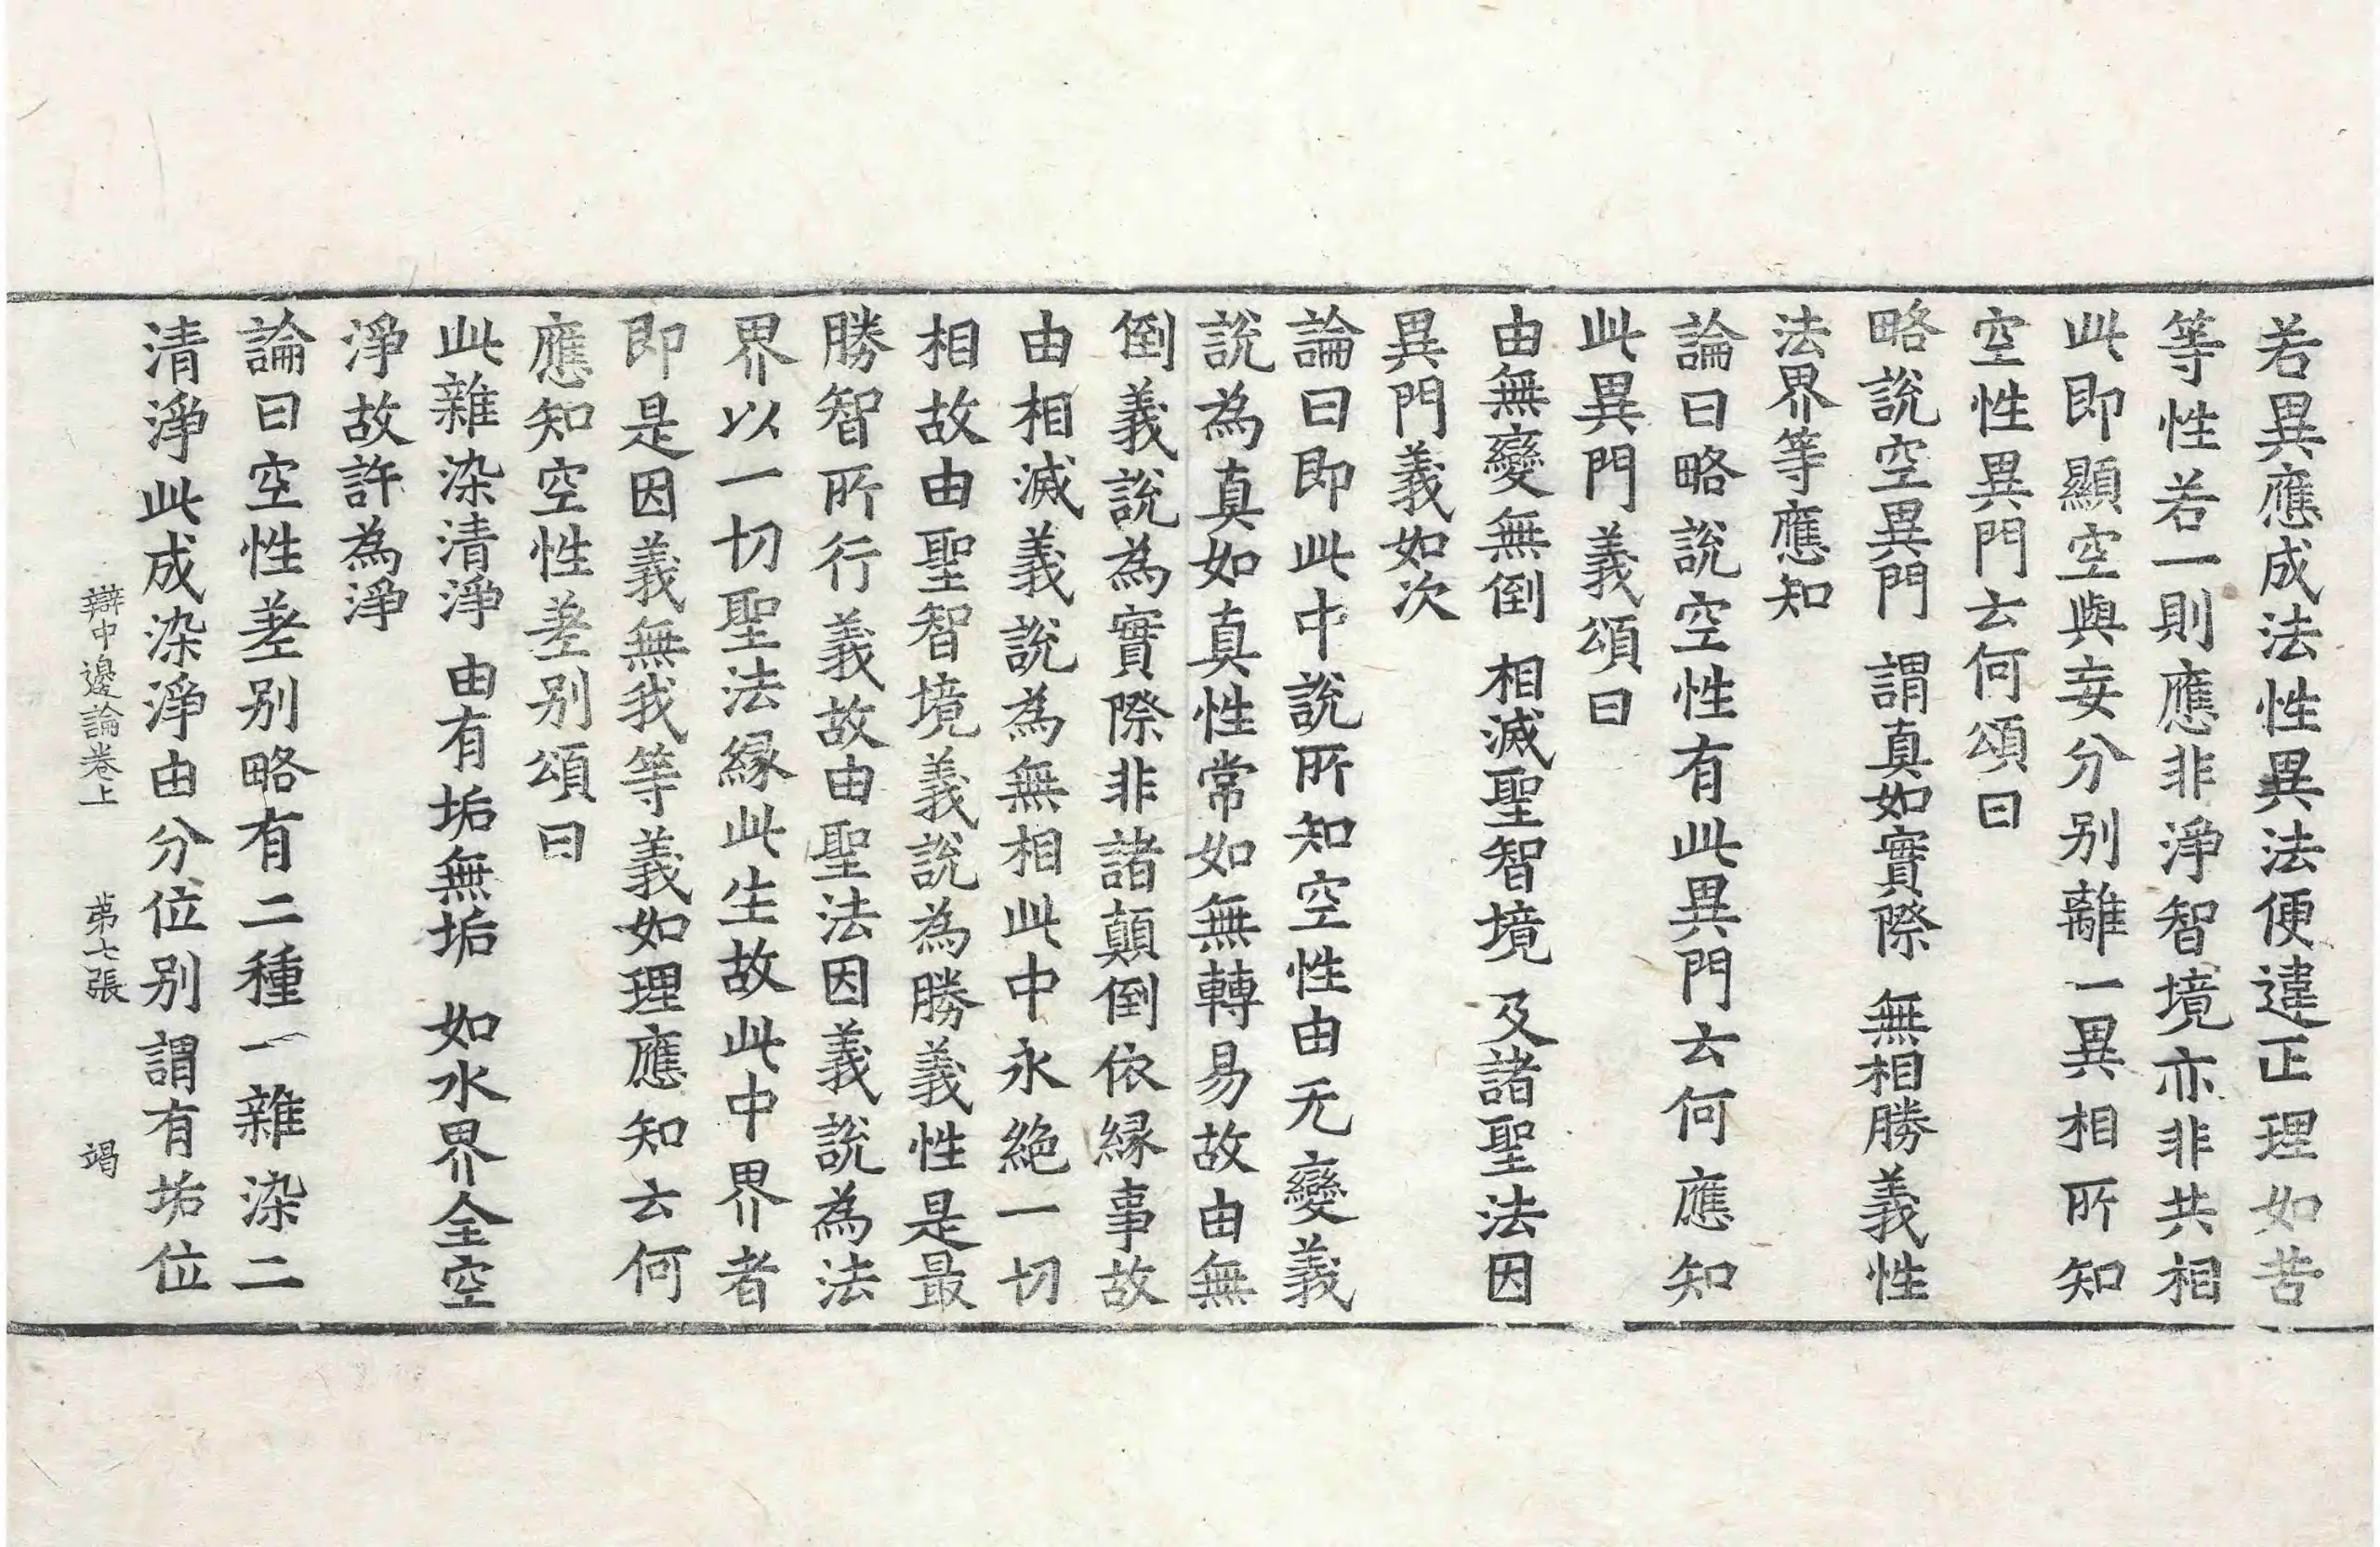 若異應成法性異法便違正理如苦
等性若一則應非淨智境亦非共相
此即顯空與妄分别離一異相所知
空性異門云何頌曰
略說空異門　謂真如實際　無相勝義性
法界等應知
論曰略說空性有此異門云何應知
此異門義頌曰
由無變無倒　相滅聖智境　及諸聖法因
異門義如次
論曰即此中說所知空性由无變義
說為真如真性常如無轉易故由無
倒義說為實際非諸顛倒依縁事故
由相滅義說為無相此中永絶一切
相故由聖智境義說為勝義性是最
勝智所行義故由聖法因義說為法
界以一切聖法縁此生故此中界者
即是因義無我等義如理應知云何
應知空性差别頌曰
此雜染清淨　由有垢無垢　如水界全空
淨故許為淨
論曰空性差别略有二種一雜染二
清淨此成染淨由分位别謂有垢位
辯中邊論卷上　第七張　竭